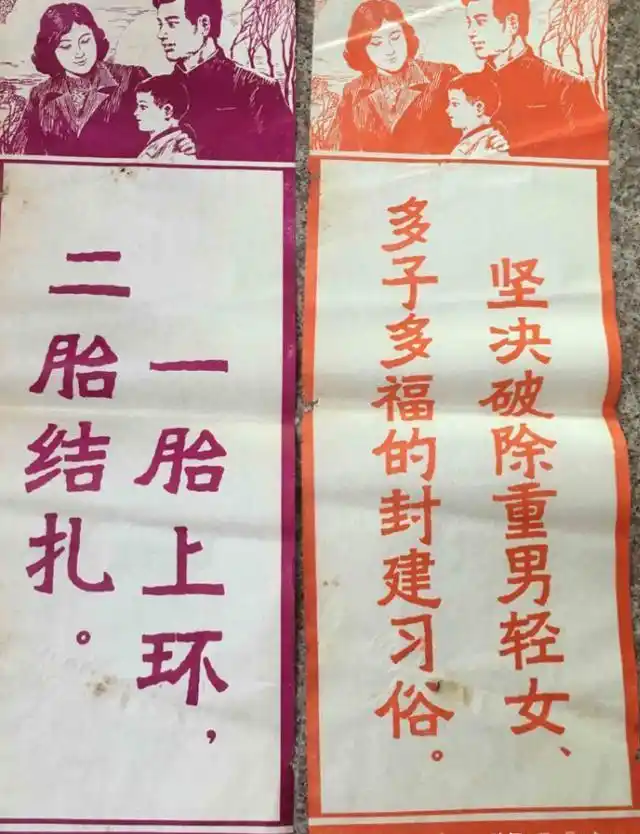 一胎上环，
二胎结扎。
坚决破除重男轻女、
多子多福的封建习俗。